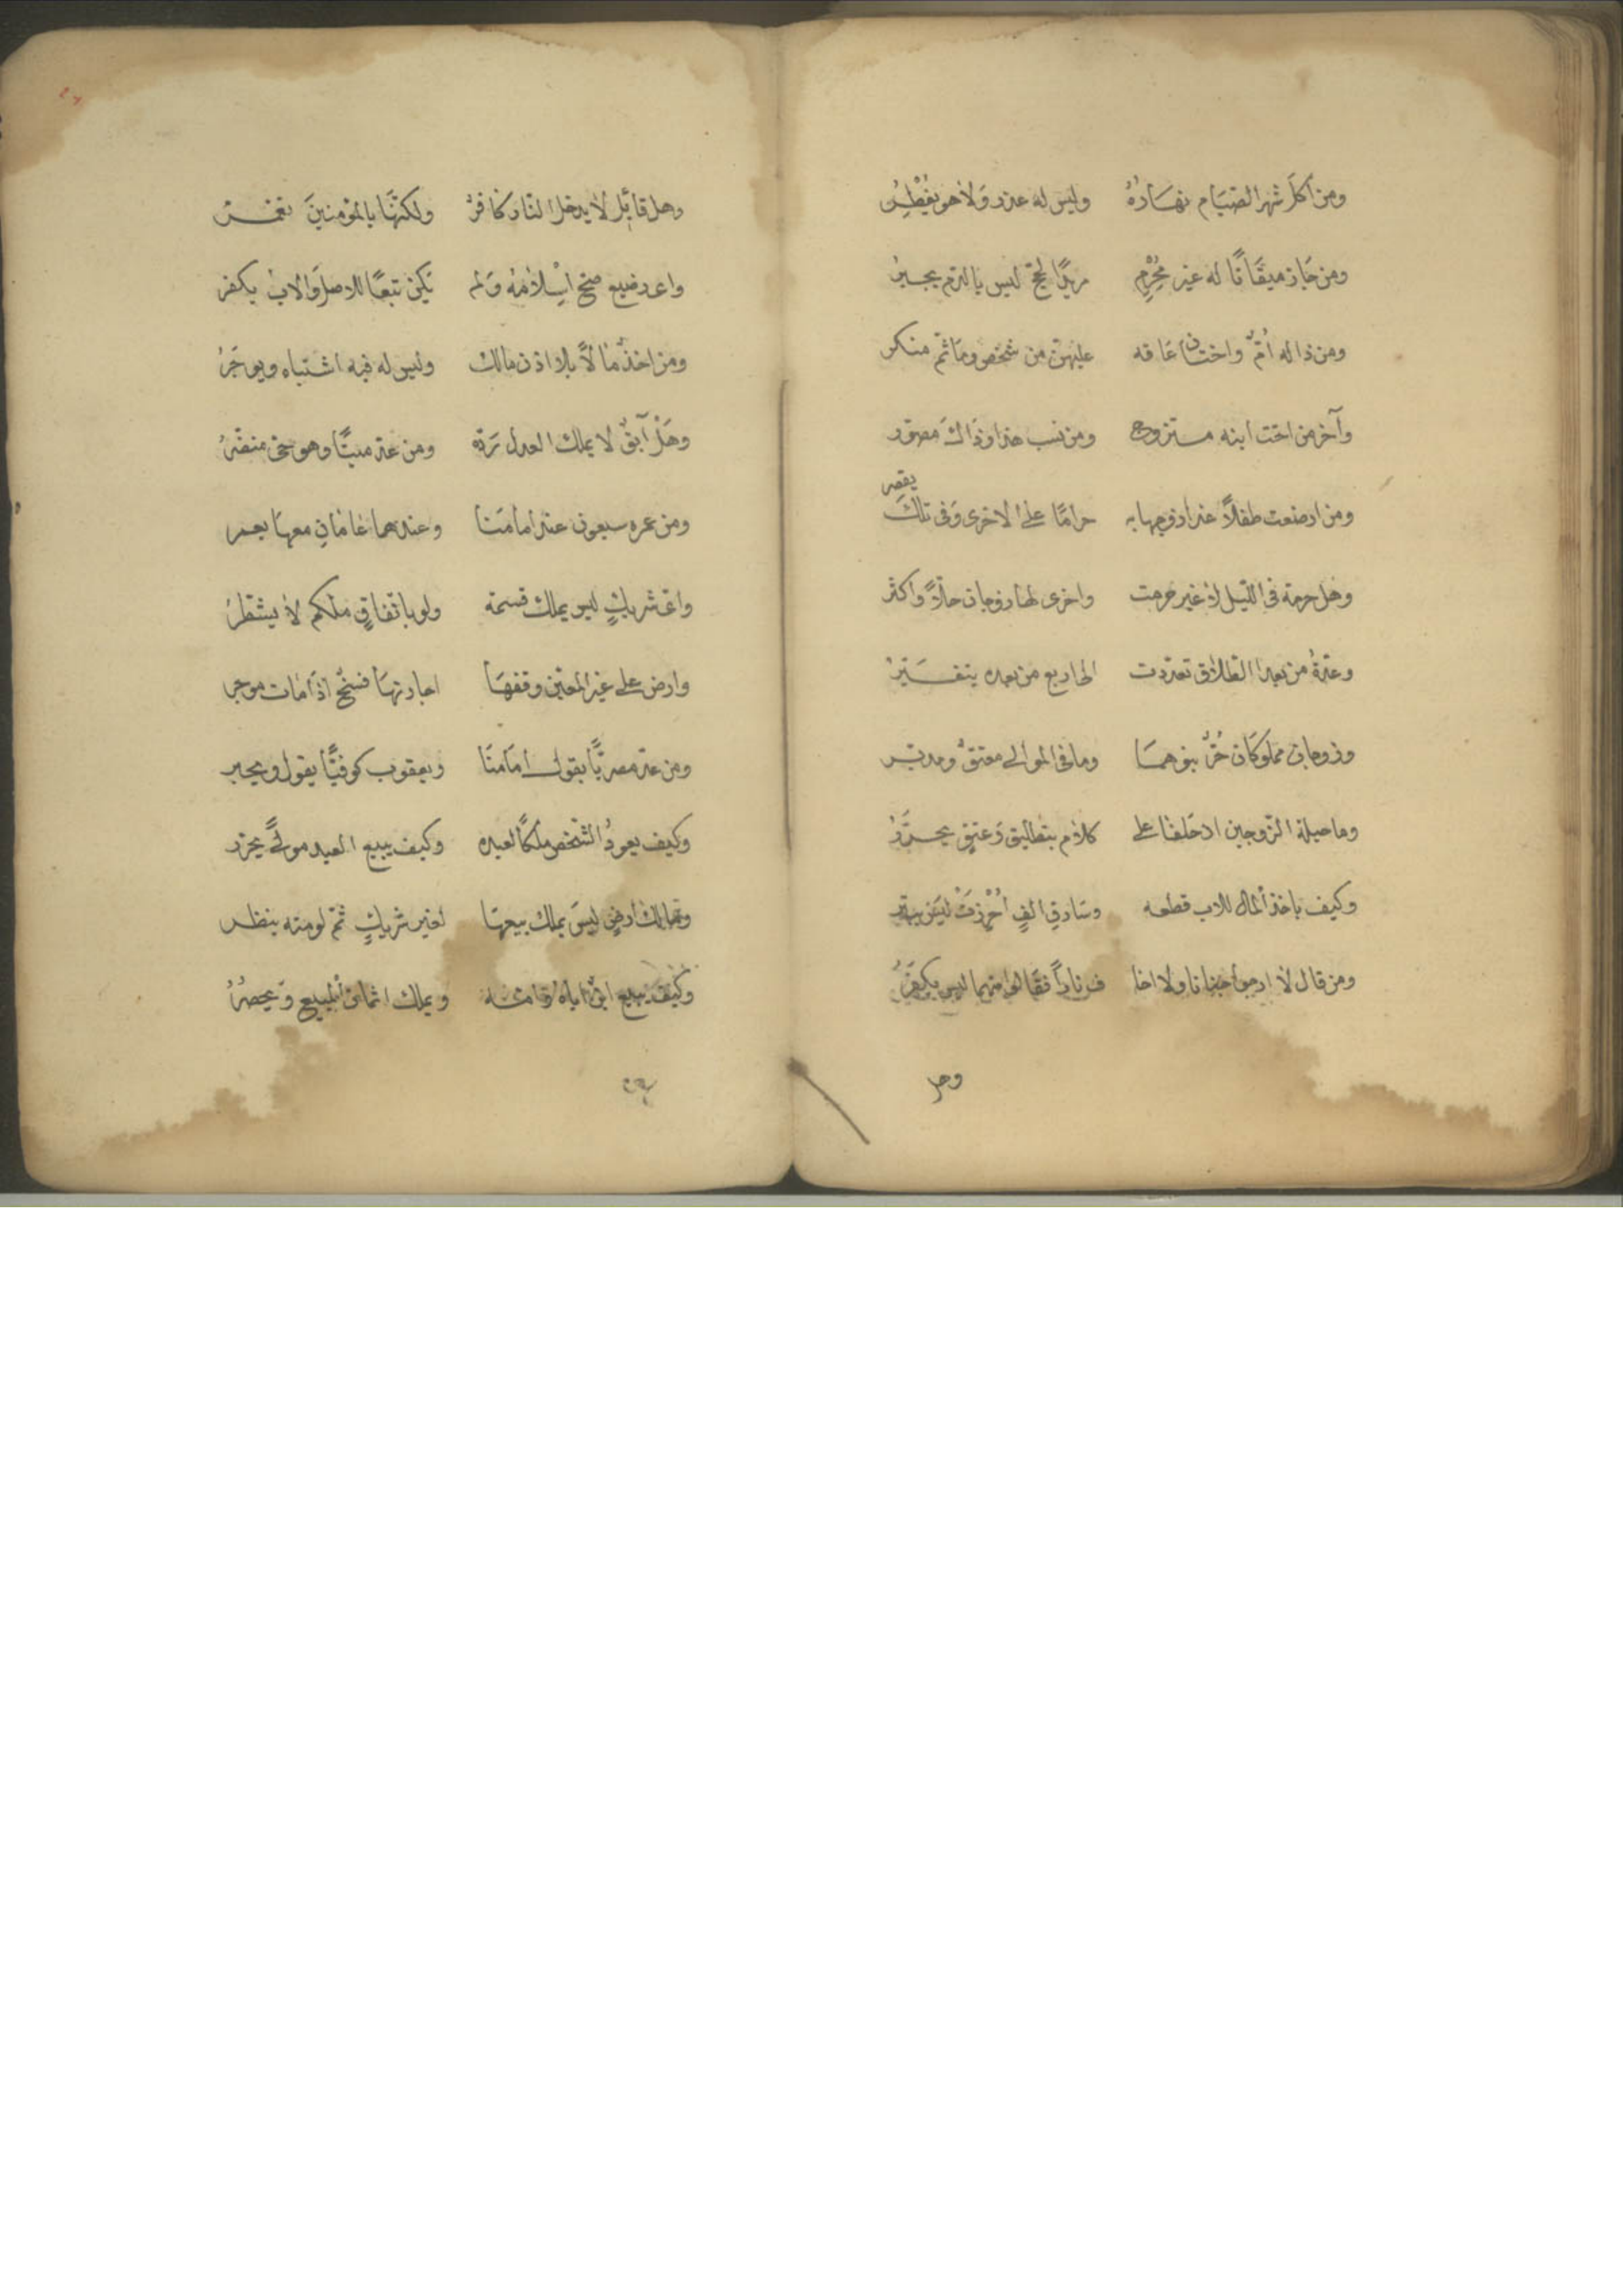 ومن آكل شهر الصيام نهاره وليس له عذر ولا هو يفطر
ومن جاز ميقاتا له غير محرم مريدا لحج ليس بالدم يجبر
ومن ذا له أم واختان عاقه عليهن من شخص وما ثم منكر
وآخر من اخت ابنه متزوج ومن نسب هذا وذاك مصور
يقصر
ومن ارضعت طفلا غدا زوجها به حراما على الاخرى وفى تلك
وهل حرمة فى الليل لا غير حرمت واخرى لها زوجان حلا واكثر
وعدة من بعد الطلاق تعددت الى اربع من بعده يتغير
وزوجان مملوكان حر بنوهما وما فى الموالى معتق ومدبر
وما حيلة الزوجين اذ حلفا على كلام بتطليق وعتق يحرر
وكيف باخذ المال للاب قطعه وسارق الف أحرزت ليس يبتر
ومن قال لا ارجو جنانا ولا اخاف نارا فقالوا ليس يكفر
وهل
وهل قائل لا يدخل النار كافر ولكنها بالمؤمنين تعمر
واى رضيع صح اسلامه ولم يكن تبعا للاصل والاب يكفر
ومن اخذ مالا بلا اذن مالك وليس له فيه اشتباه ويوجر
وهل آبق لا يملك العدل رده ومن عد ميتا وهو حى
ومن عمره سبعون عند امامنا وعندهما عامان معها يعمر
واى شريك ليس يملك قسمة ولو باتفاق ملكهم لا يشطر
وارض على غير المعين وقفها اجارتها فسخ اذا مات موجر
ومن عد مصريا بقول امامنا ويعقوب كوفيا يقول ويجبر
وكيف يعود الشخص ملكا لعبده وكيف يبيع العبد مولى يحرر
ومالك ارض ليس يملك بيعها لغير شريك ثم لو منه ينظر
وكيف يبيع ابن اباه وامه ويملك اثمان المبيع ويحصر